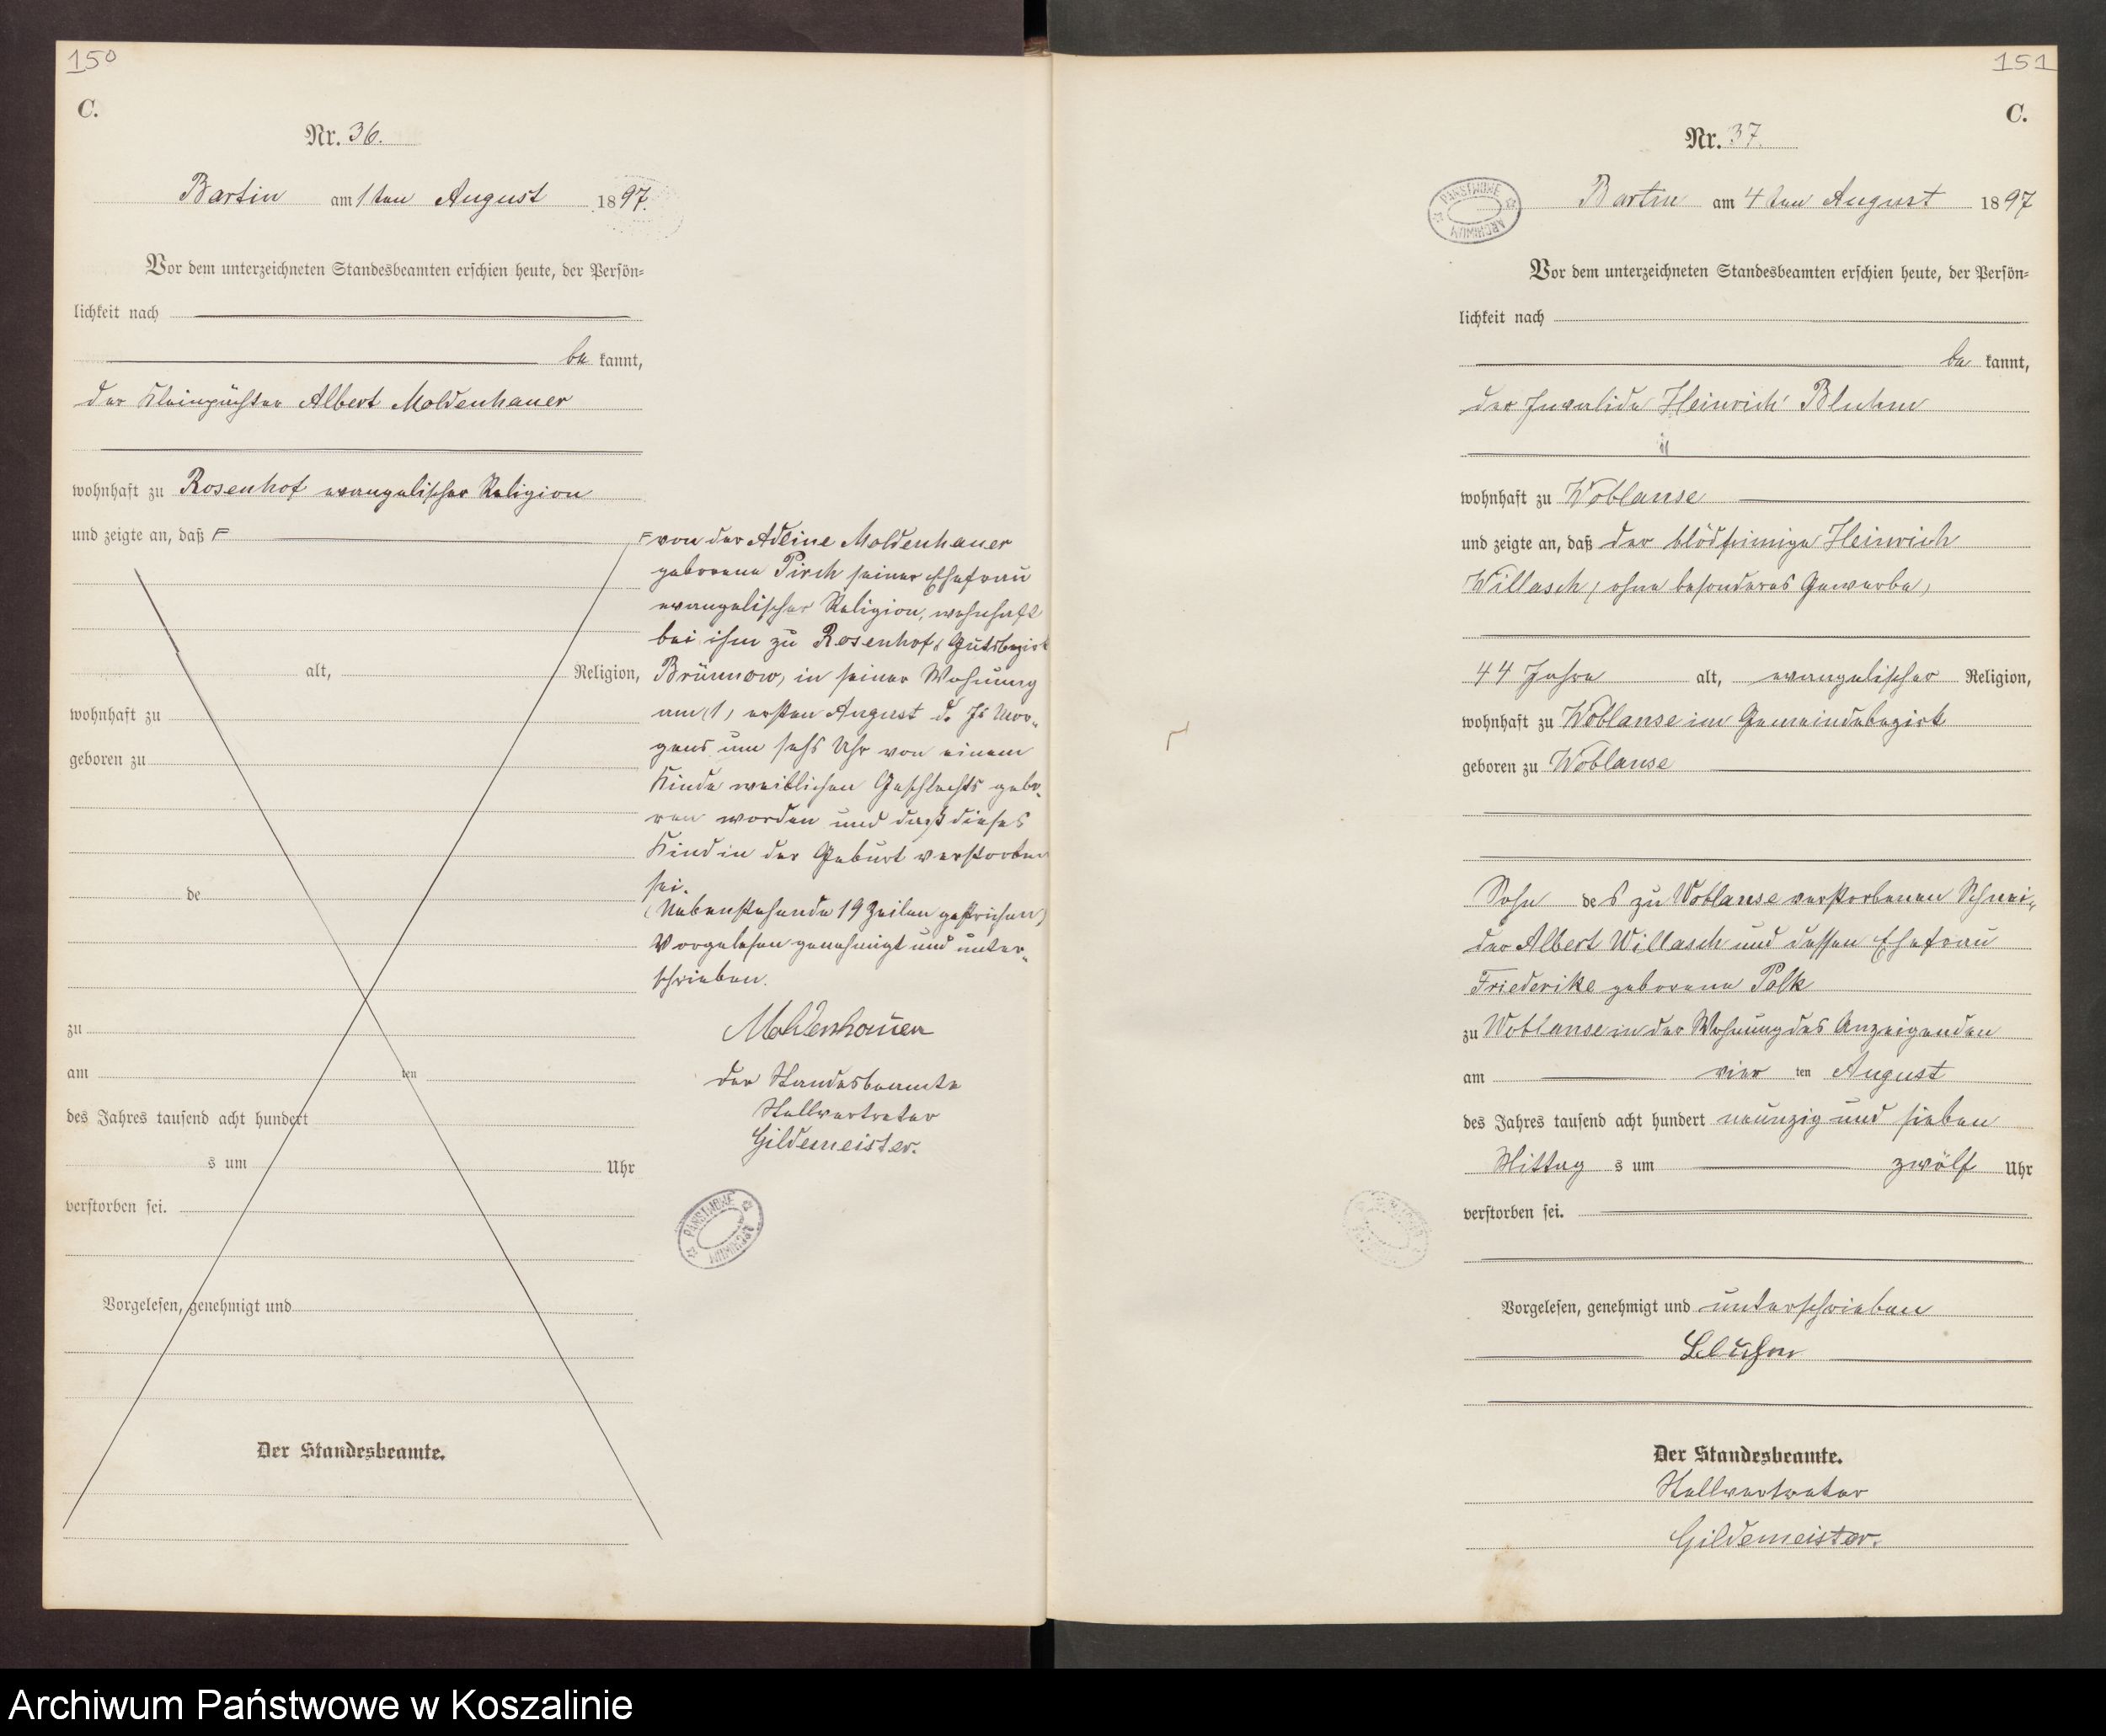 150
C.
Nr. 36.
Bartin am 1ten August 1897.
Vor dem unterzeichneten Standesbeamten erschien heute, der Persön-
lichkeit nach
be kannt,
der Kleinpächter Albert Moldenhauer
wohnhaft zu Rosenhof evangelischer Religion
und zeigte an, daß F
alt, Religion,
wohnhaft zu
geboren zu
de
zu
am ten
des Jahres tausend acht hundert
s um Uhr
verstorben sei.
Vorgelesen, genehmigt und
Der Standesbeamte.
F von der Adeine Moldenhauer
geborene Pirch seiner Ehefrau
evangelischer Religion, wohnhaft
bei ihm zu Rosenhof, Gutsbezirk
Brünnow, in seiner Wohnung
am (1) ersten August d. Js Mor-
gens um sechs Uhr von einem
Kinde weiblichen Geschlechts gebo-
ren worden und daß dieses
Kind in der Geburt verstorben
sei.
(Nebenstehende 19 Zeilen gestrichen)
Vorgelesen genehmigt und unter-
schrieben.
Moldenhauer
Der Standesbeamte
Stellvertreter
Gildemeister.
PAŃSTWOWE ARCHIWUM
151
C.
Nr. 37.
PAŃSTWOWE ARCHIWUM
Bartin am 4ten August 1897
Vor dem unterzeichneten Standesbeamten erschien heute, der Persön-
lichkeit nach
be kannt,
der Invalide Heinrich Bluhm
wohnhaft zu Woblanse
und zeigte an, daß der blödsinnige Heinrich
Willasch, ohne besonderes Gewerbe,
44 Jahre alt, evangelischer Religion,
wohnhaft zu Woblanse im Gemeindebezirk
geboren zu Woblanse
Sohn des zu Woblanse verstorbenen Schnei-
der Albert Willasch und dessen Ehefrau
Friederike geborene Polk
zu Woblanse in der Wohnung des Anzeigenden
am vier ten August
des Jahres tausend acht hundert neunzig und sieben
Mittag s um zwölf Uhr
verstorben sei.
Vorgelesen, genehmigt und unterschrieben
Bluhm
Der Standesbeamte.
Stellvertreter
Gildemeister.
Archiwum Państwowe w Koszalinie